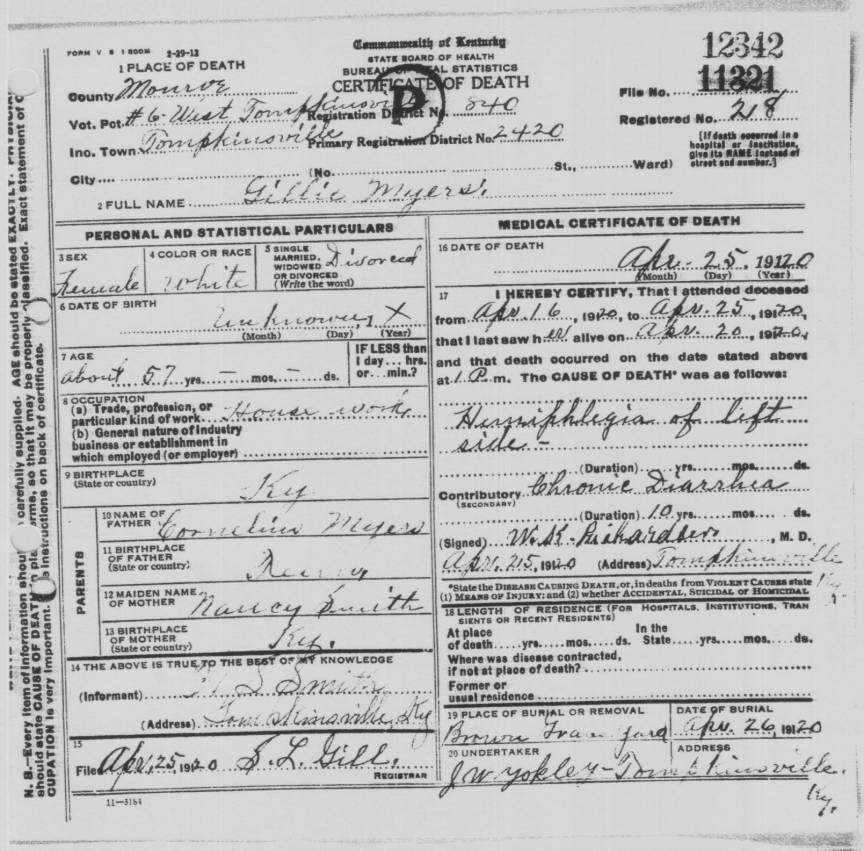 FORM V S 1-500M 2-29-12
Commonwealth of Kentucky
STATE BOARD OF HEALTH
BUREAU OF VITAL STATISTICS
CERTIFICATE OF DEATH
P
12342
11321
File No.
Registered No. 28
[If death occurred in a hospital or institution, give its NAME instead of street and number.]
1 PLACE OF DEATH
County Monroe
Vot. Pct #6 West Tompkinsville Registration District No. 840
Inc. Town Tompkinsville Primary Registration District No. 2420
City (No. St., Ward)
2 FULL NAME Gillie Myers.
PERSONAL AND STATISTICAL PARTICULARS
3 SEX Female
4 COLOR OR RACE White
5 SINGLE MARRIED, WIDOWED OR DIVORCED (Write the word) Divorced
6 DATE OF BIRTH
X
(Month) (Day) (Year)
7 AGE
about 57 yrs. – mos. – ds.
IF LESS than 1 day... hrs. or... min.?
8 OCCUPATION
(a) Trade, profession, or particular kind of work House work
(b) General nature of industry
business or establishment in
which employed (or employer)
9 BIRTHPLACE
(State or country) Ky
PARENTS
10 NAME OF FATHER Cornelius Myers
11 BIRTHPLACE OF FATHER
(State or country)
12 MAIDEN NAME OF MOTHER Nancy Smith
13 BIRTHPLACE OF MOTHER
(State or country) Ky.
14 THE ABOVE IS TRUE TO THE BEST OF MY KNOWLEDGE
(Informant) Smith
(Address) Tompkinsville, Ky
15
Filed Apr, 25, 1920 S. L. Gill.
REGISTRAR
11-3184
MEDICAL CERTIFICATE OF DEATH
16 DATE OF DEATH
Apr. 25, 19120
(Month) (Day) (Year)
17 I HEREBY CERTIFY, That I attended deceased
from Apr. 16, 19120, to Apr. 25, 19120,
that I last saw her alive on Apr. 20, 19120,
and that death occurred on the date stated above
at 1 P. m. The CAUSE OF DEATH* was as follows:
Hemiphlegia of left
side –
(Duration) yrs. mos. ds.
Contributory Chronic Diarrhea
(SECONDARY)
(Duration) 10 yrs. mos. ds.
(Signed) W. K. Richardson, M. D.
Apr. 25, 19120 (Address) Tompkinsville
Ky
*State the DISEASE CAUSING DEATH, or, in deaths from VIOLENT CAUSES state
(1) MEANS OF INJURY; and (2) whether ACCIDENTAL, SUICIDAL OR HOMICIDAL
18 LENGTH OF RESIDENCE (FOR HOSPITALS, INSTITUTIONS, TRAN
SIENTS OR RECENT RESIDENTS)
At place of death yrs. mos. ds. In the State yrs. mos. ds.
Where was disease contracted,
if not at place of death?
Former or
usual residence
19 PLACE OF BURIAL OR REMOVAL
Brown Grave Yard
DATE OF BURIAL
Apr. 26, 19120
20 UNDERTAKER
ADDRESS
J W Yokley – Tompkinsville.
Ky.
N. B.—Every item of information shou carefully supplied. AGE should be stated EXACTLY. PHYSICI
should state CAUSE OF DEATH in pla erms, so that it may be properly classified. Exact statement of
CUPATION is very important. instructions on back of certificate.